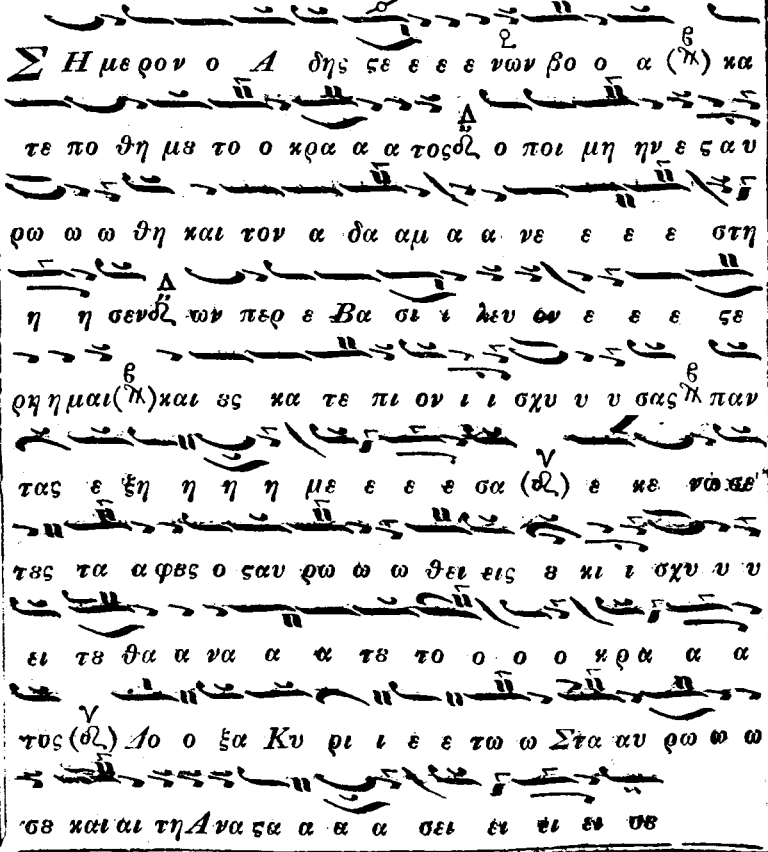 Σ Η με ρον ο Α δης ϛε ε ε ε νων βο ο α κα
τε πο θη μȣ το ο κρα α α τος ο ποι μη ην ε ϛ αυ
ρω ω ω θη και τον α δα αμ α α νε ε ε ε στη
η η σεν ων περ ε Βα σι ι λευ ον ε ε ε ϛε
ρη η μαι και ȣς κα τε πι ον ι ι σχυ υ υ σας παν
τας ε ξη η η η με ε ε ε σα ε κε νω σε
τȣς τα α φȣς ο ϛαυ ρω ω ω θει εις ȣ κι ι σχυ υ υ
ει τȣ θα α να α α τȣ το ο ο ο κρ α α α
τος Δο ο ξα Κυ ρι ι ε ε τω ω Στα αυ ρω ω ω
σȣ και αι τη Α να ϛα α α α σει ει ει ει σȣ